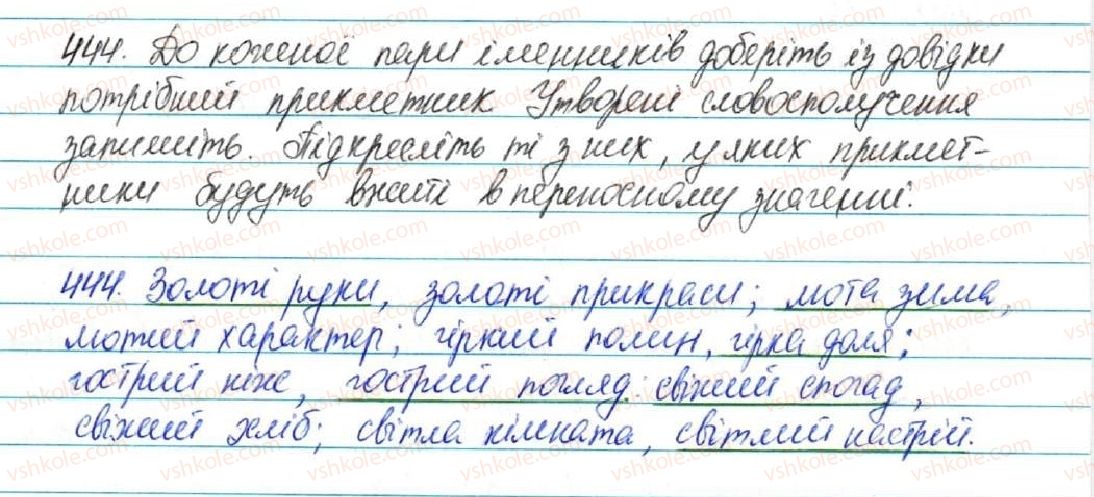 444. До кожної пари іменників доберіть із довідки
потрібний прикметник Утворені словосполучення
запишіть. Підкресліть ті з них, у яких прикмет-
ники будуть вжиті в переносному значенні.
444. Золоті руки, золоті прикраси; люта зима,
лютий характер; гіркий полин, гірка доля;
гострий ніж, гострий погляд. свіжий спогад,
свіжий хліб; світла кімната, світлий настрій.